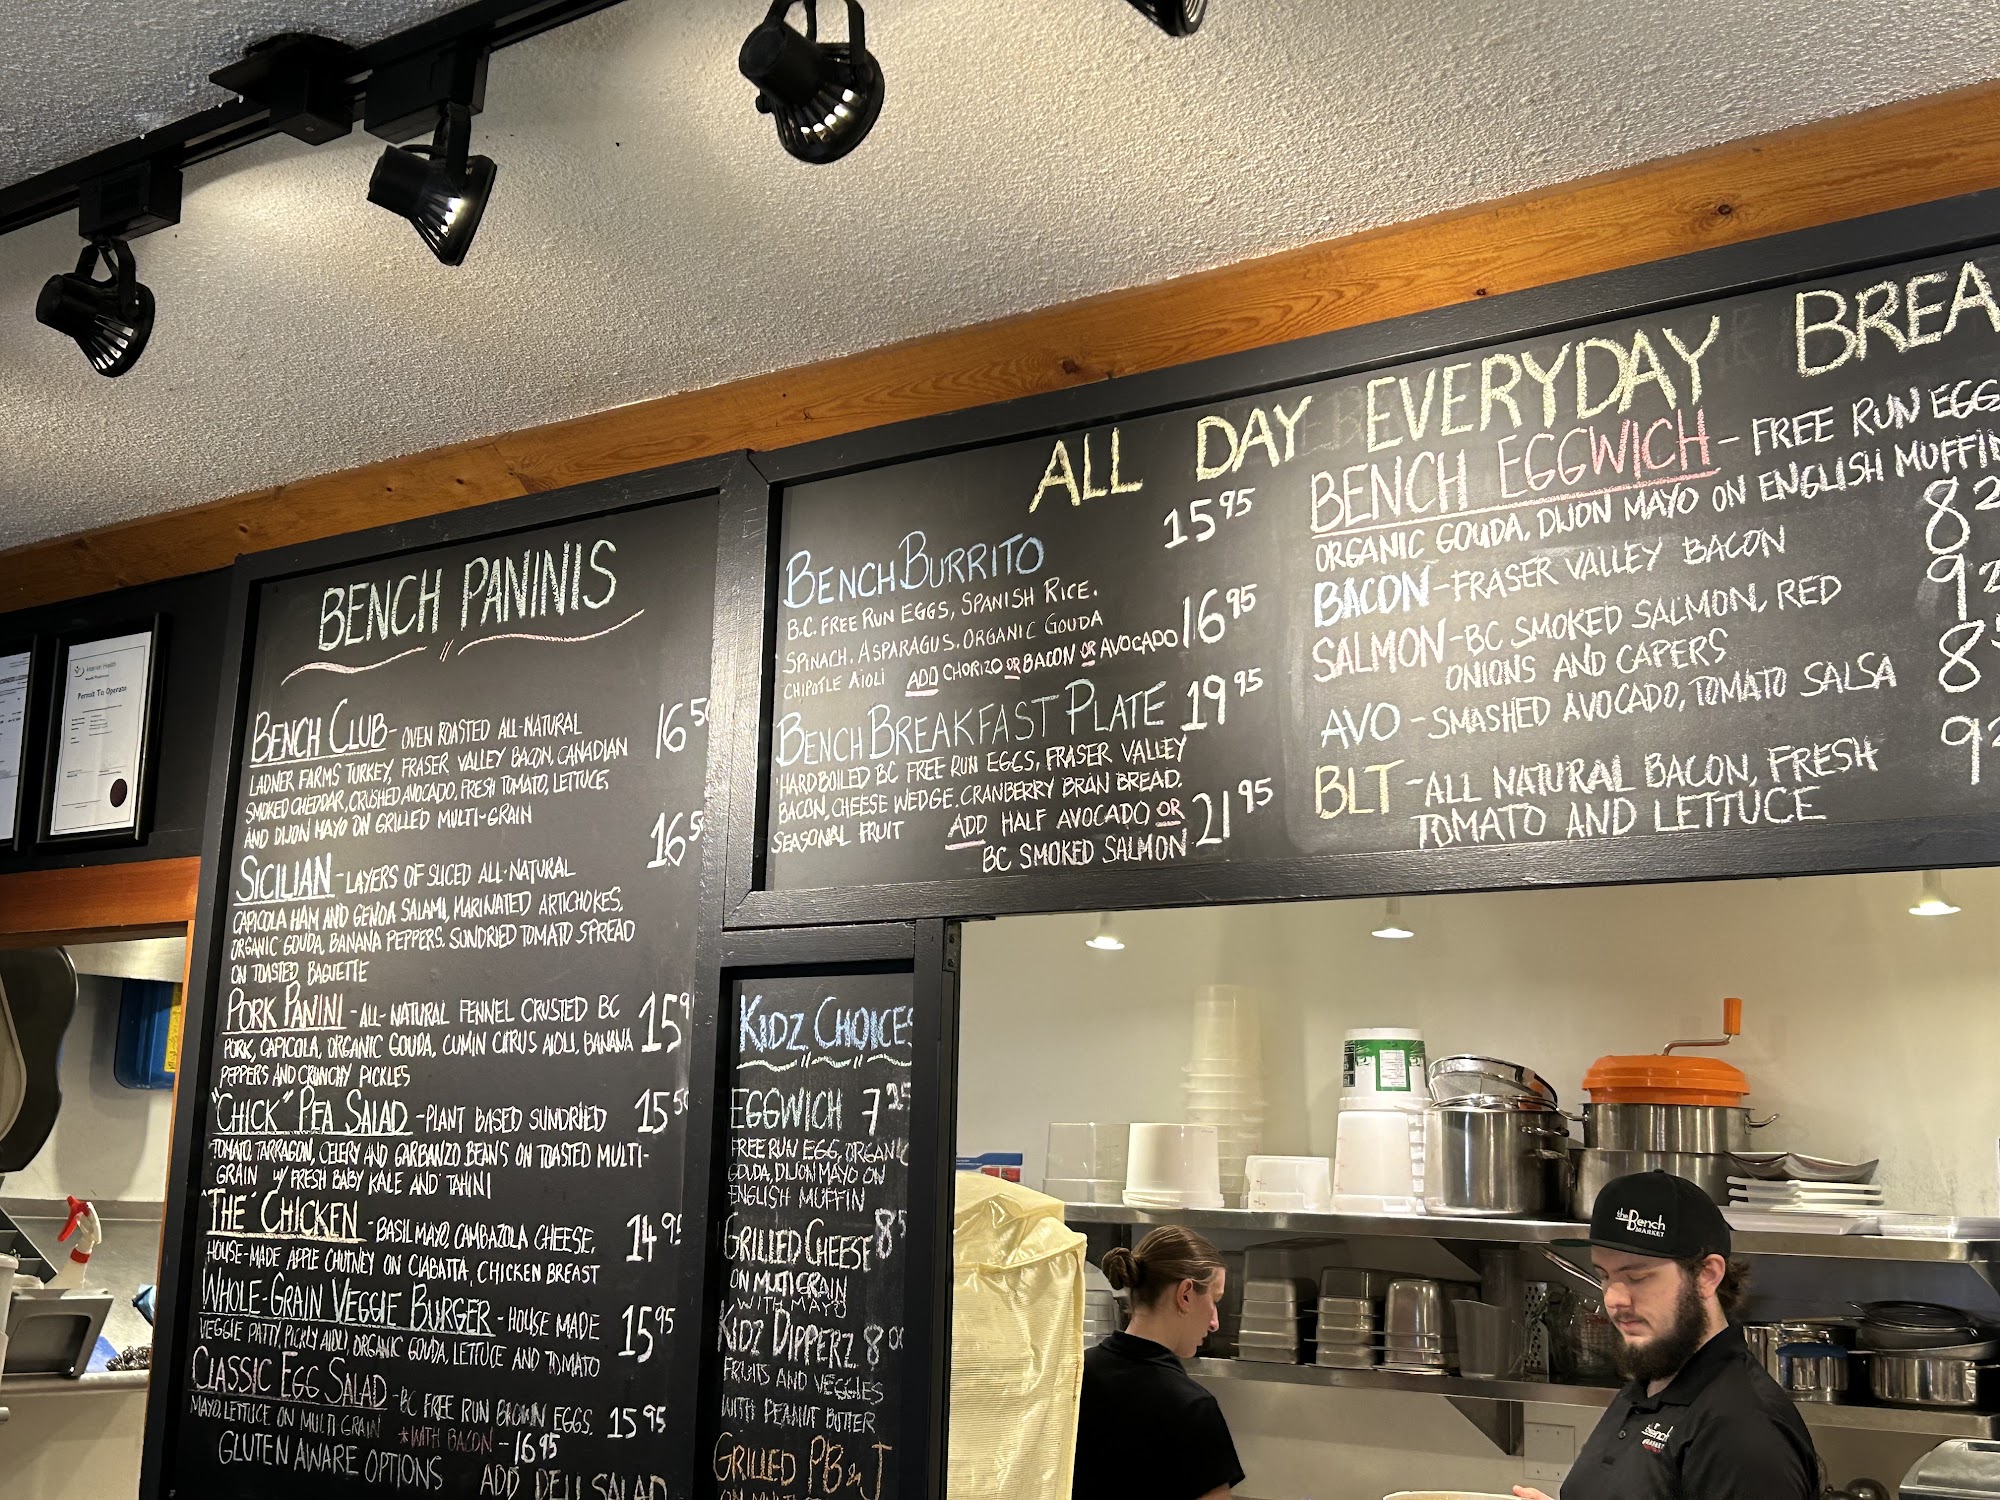 Interior Health
Permit To Operate
BENCH PANINIS
BENCH CLUB - OVEN ROASTED ALL-NATURAL 16 50
LADNER FARMS TURKEY, FRASER VALLEY BACON, CANADIAN
SMOKED CHEDDAR, CRUSHED AVOCADO, FRESH TOMATO, LETTUCE,
AND DIJON MAYO ON GRILLED MULTI-GRAIN
SICILIAN - LAYERS OF SLICED ALL-NATURAL 16 50
CAPICOLA HAM AND GENOA SALAMI, MARINATED ARTICHOKES,
ORGANIC GOUDA, BANANA PEPPERS. SUNDRIED TOMATO SPREAD
ON TOASTED BAGUETTE
PORK PANINI - ALL-NATURAL FENNEL CRUSTED BC 15 9
PORK, CAPICOLA, ORGANIC GOUDA, CUMIN CITRUS AIOLI, BANANA
PEPPERS AND CRUNCHY PICKLES
"CHICK" PEA SALAD - PLANT BASED SUNDRIED 15 50
TOMATO, TARRAGON, CELERY AND GARBANZO BEANS ON TOASTED MULTI-
GRAIN W/ FRESH BABY KALE AND TAHINI
"THE" CHICKEN - BASIL MAYO, CAMBAZOLA CHEESE, 14 9
HOUSE-MADE APPLE CHUTNEY ON CIABATTA, CHICKEN BREAST
WHOLE-GRAIN VEGGIE BURGER - HOUSE MADE 15 95
VEGGIE PATTY, PICKLY AIOLI, ORGANIC GOUDA, LETTUCE AND TOMATO
CLASSIC EGG SALAD - BC FREE RUN BROWN EGGS. 15 95
MAYO, LETTUCE ON MULTI GRAIN *WITH BACON - 16 95
GLUTEN AWARE OPTIONS ADD DELI SALAD
ALL DAY EVERYDAY BREA
BENCH BURRITO 15 95
B.C. FREE RUN EGGS, SPANISH RICE.
SPINACH. ASPARAGUS. ORGANIC GOUDA
CHIPOTLE AIOLI ADD CHORIZO OR BACON OR AVOCADO 16 95
BENCH BREAKFAST PLATE 19 95
HARDBOILED BC FREE RUN EGGS, FRASER VALLEY
BACON, CHEESE WEDGE. CRANBERRY BRAN BREAD.
SEASONAL FRUIT ADD HALF AVOCADO OR
BC SMOKED SALMON 21 95
BENCH EGGWICH - FREE RUN EGG
ORGANIC GOUDA, DIJON MAYO ON ENGLISH MUFFIN
8 2
BACON - FRASER VALLEY BACON
9 2
SALMON - BC SMOKED SALMON, RED
ONIONS AND CAPERS
8 5
AVO - SMASHED AVOCADO, TOMATO SALSA
9 2
BLT - ALL NATURAL BACON, FRESH
TOMATO AND LETTUCE
KIDZ CHOICES
EGGWICH 7 25
FREE RUN EGG, ORGANIC
GOUDA, DIJON MAYO ON
ENGLISH MUFFIN
GRILLED CHEESE 8 5
ON MULTIGRAIN
WITH MAYO
KIDZ DIPPERZ 8 00
FRUITS AND VEGGIES
WITH PEANUT BUTTER
GRILLED PB & J
the Bench
MARKET
the Bench
MARKET